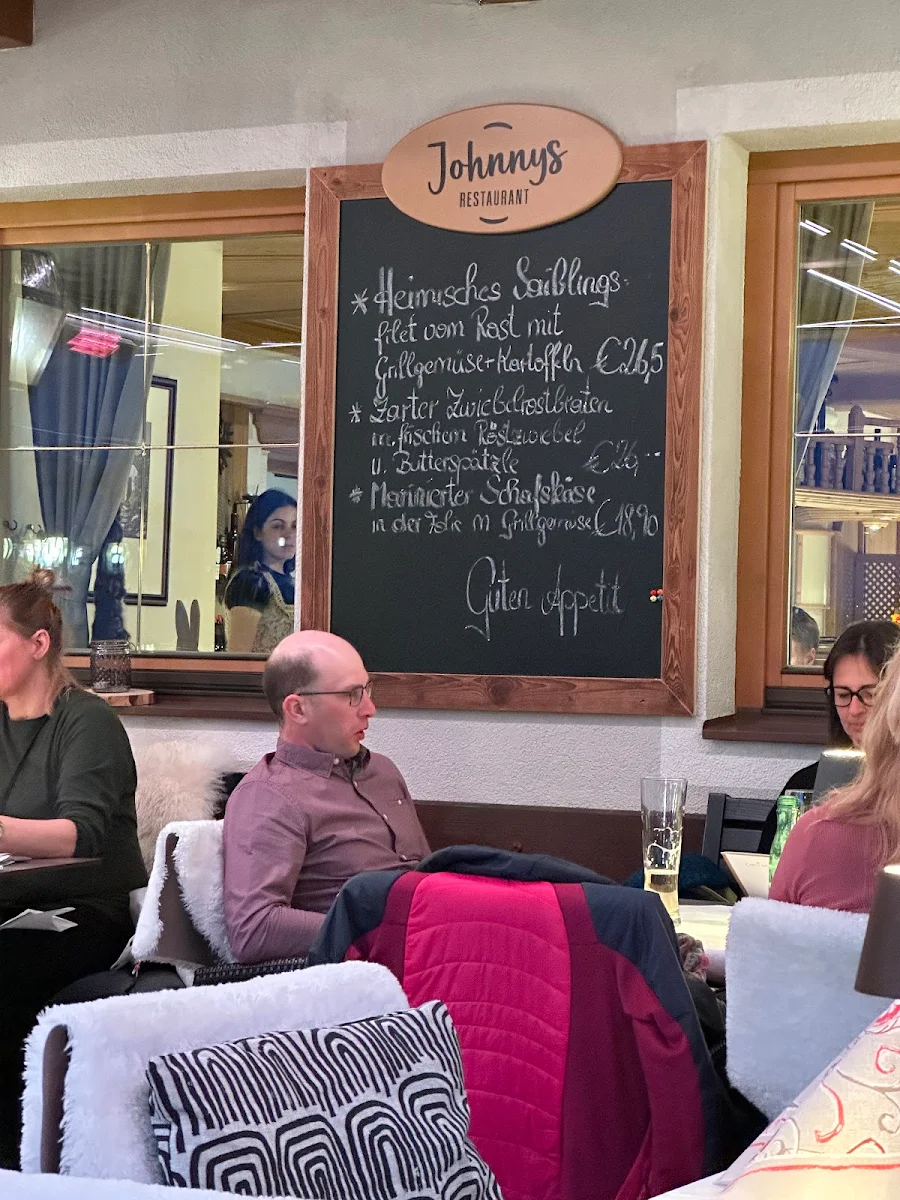 Johnnys
RESTAURANT
* Heimisches Saiblings-
filet vom Rost mit
Grillgemüse + Kartoffeln €26,5
* Zarter Zwiebelrostbraten
m. frischem Röstzwiebel
u. Butterspätzle €26,--
* Marinierter Schafskäse
in der Folie m Grillgemüse €18,90
Guten Appetit